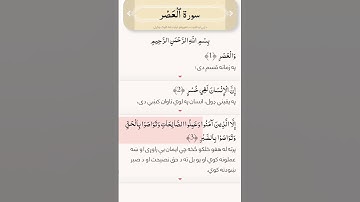 سورة ٱلْعَصْر
بِسْمِ اللَّهِ الرَّحْمَنِ الرَّحِيمِ
وَالْعَصْرِ ﴿1﴾
په زمانه قسم دی؛
إِنَّ الْإِنْسَانَ لَفِي خُسْرٍ ﴿2﴾
په یقیني ډول، انسان په لوي تاوان کښې دی،
إِلَّا الَّذِينَ آمَنُوا وَعَمِلُوا الصَّالِحَاتِ وَتَوَاصَوْا بِالْحَقِّ
وَتَوَاصَوْا بِالصَّبْرِ ﴿3﴾
پرته له هغو خلکو څخه چې ایمان یې راوړی او ښه
عملونه کوي او یو بل ته د حق نصیحت او د صبر
ښودنه کوي.